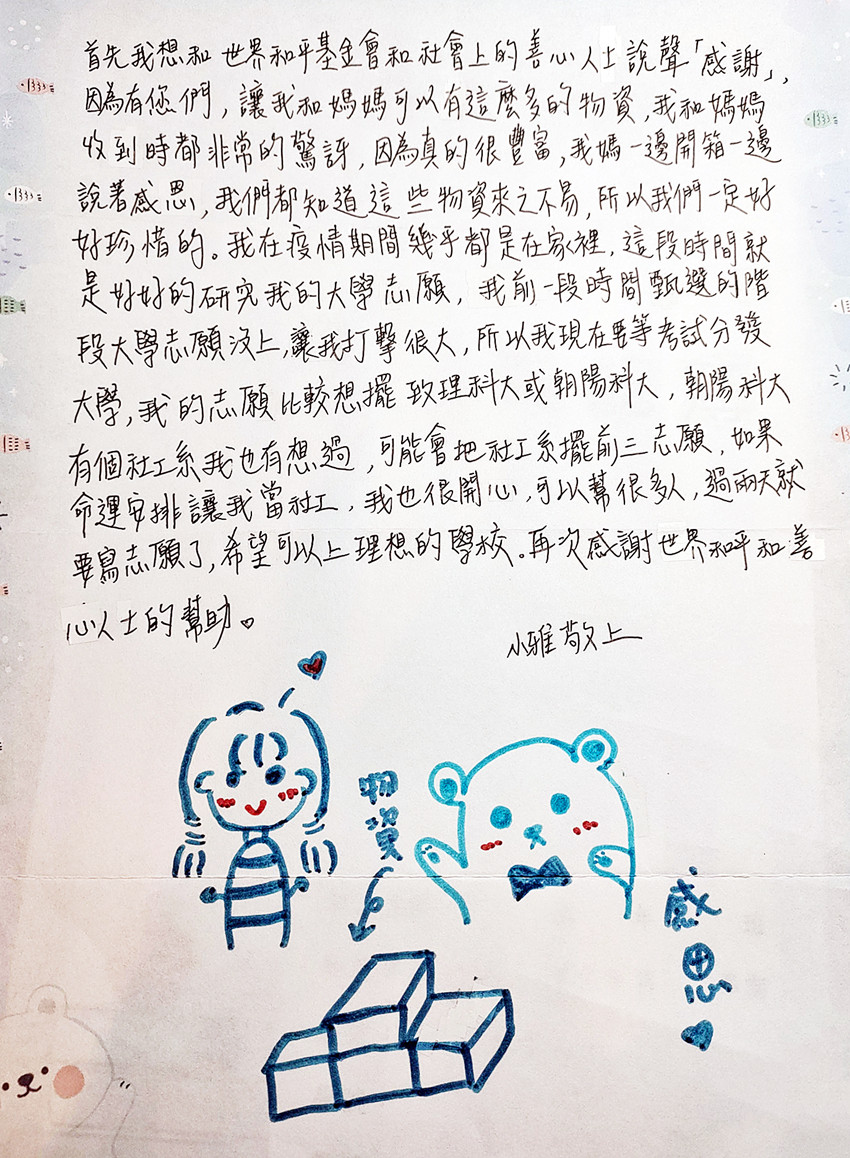 首先我想和世界和平基金會和社會上的善心人士說聲「感謝」,
因為有您們,讓我和媽媽可以有這麼多的物資,我和媽媽
收到時都非常的驚訝,因為真的很豐富,我媽一邊開箱一邊
說著感恩,我們都知道這些物資來之不易,所以我們一定好
好珍惜的。我在疫情期間幾乎都是在家裡,這段時間就
是好好的研究我的大學志願,我前一段時間甄選的階
段大學志願沒上,讓我打擊很大,所以我現在要等考試分發
大學,我的志願比較想擺致理科大或朝陽科大,朝陽科大
有個社工系我也有想過,可能會把社工系擺前三志願,如果
命運安排讓我當社工,我也很開心,可以幫很多人,過兩天就
要寫志願了,希望可以上理想的學校。再次感謝世界和平和善
心人士的幫助。
小雅敬上
物資
感恩